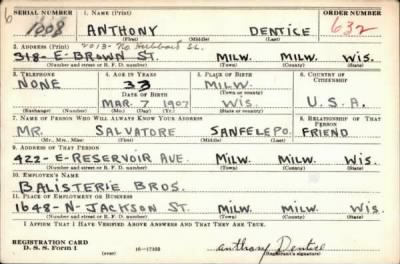 6
SERIAL NUMBER 1. NAME (Print) ORDER NUMBER
1008 ANTHONY DENTICE 632
(First) (Middle) (Last)
2. ADDRESS (Print) 2013- No. Hubbard St.
318- E- BROWN ST. MILW. MILW. WIS.
(Number and street or R. F. D. number) (Town) (County) (State)
3. TELEPHONE 4. AGE IN YEARS 5. PLACE OF BIRTH 6. COUNTRY OF CITIZENSHIP
NONE 33 MILW.
DATE OF BIRTH (Town or county)
MAR. 7 1907 WIS. U.S.A.
(Exchange) (Number) (Mo.) (Day) (Yr.) (State or country)
7. NAME OF PERSON WHO WILL ALWAYS KNOW YOUR ADDRESS 8. RELATIONSHIP OF THAT PERSON
MR. SALVATORE SANFELEPO. FRIEND
(Mr., Mrs., Miss) (First) (Middle) (Last)
9. ADDRESS OF THAT PERSON
422- E- RESERVOIR AVE. MILW. MILW. WIS.
(Number and street or R. F. D. number) (Town) (County) (State)
10. EMPLOYER'S NAME
BALISTERIE BROS.
11. PLACE OF EMPLOYMENT OR BUSINESS
1648- N- JACKSON ST. MILW. MILW. WIS.
(Number and street or R. F. D. number) (Town) (County) (State)
I AFFIRM THAT I HAVE VERIFIED ABOVE ANSWERS AND THAT THEY ARE TRUE.
REGISTRATION CARD
D. S. S. Form 1 (over) 16-17105 Anthony Dentice
(Registrant's signature)